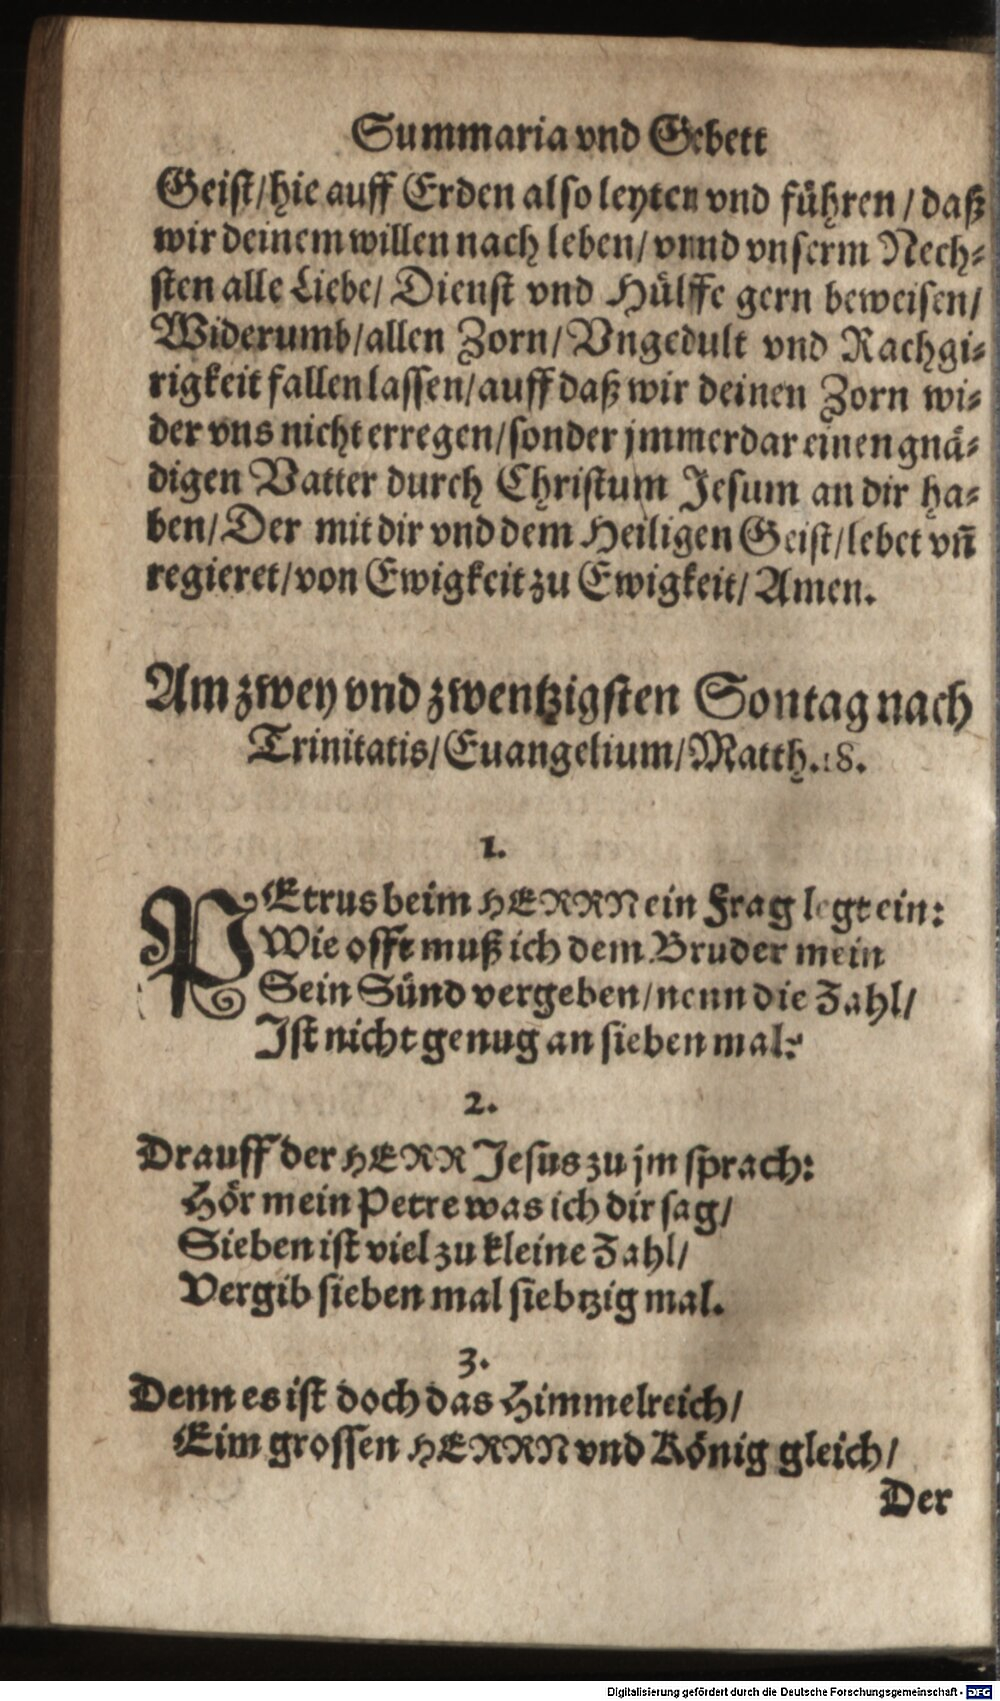 Summaria vnd Gebett
Geist/hie auff Erden also leyten vnd führen / daß
wir deinem willen nach leben/ vnnd vnserm Nech-
sten alle Liebe/ Dienst vnd Hülffe gern beweisen/
Widerumb/allen Zorn/ Vngedult vnd Rachgi-
rigkeit fallen lassen/auff daß wir deinen Zorn wi-
der vns nicht erregen/sonder jmmerdar einen gnä-
digen Vatter durch Christum Jesum an dir ha-
ben/ Der mit dir vnd dem Heiligen Geist/lebet vn̄
regieret/von Ewigkeit zu Ewigkeit/ Amen.
Am zwey vnd zwentzigsten Sontag nach
Trinitatis/Euangelium/Matth. 18.
1.
PEtrus beim HERRN ein Frag legt ein:
Wie offt muß ich dem Bruder mein
Sein Sünd vergeben/nenn die Zahl/
Ist nicht genug an sieben mal?
2.
Drauff der HERR Jesus zu jm sprach:
Hör mein Petre was ich dir sag/
Sieben ist viel zu kleine Zahl/
Vergib sieben mal siebtzig mal.
3.
Denn es ist doch das Himmelreich/
Eim grossen HERRN vnd König gleich/
Der
Digitalisierung gefördert durch die Deutsche Forschungsgemeinschaft - DFG